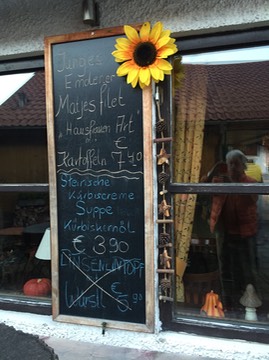 Emdener
Matjes filet
"Hausfrauen Art"
€
Kartoffeln 7,40
Steirische
Kürbiscreme
Suppe
Kürbiskernöl
€ 3,90
LINSENEINTOPF
Würstl € 5,90